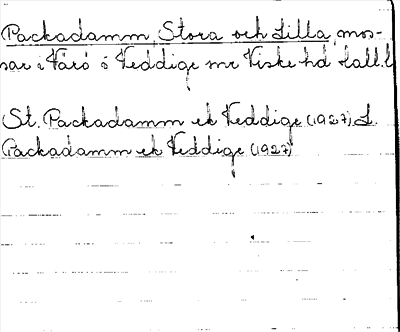 Packadamm, Stora och Lilla, mos-
sar i Värö o Veddige snr Viske hd Hall.l.
St. Packadamm ek Veddige (1927) L.
Packadamm ek Veddige (1927)